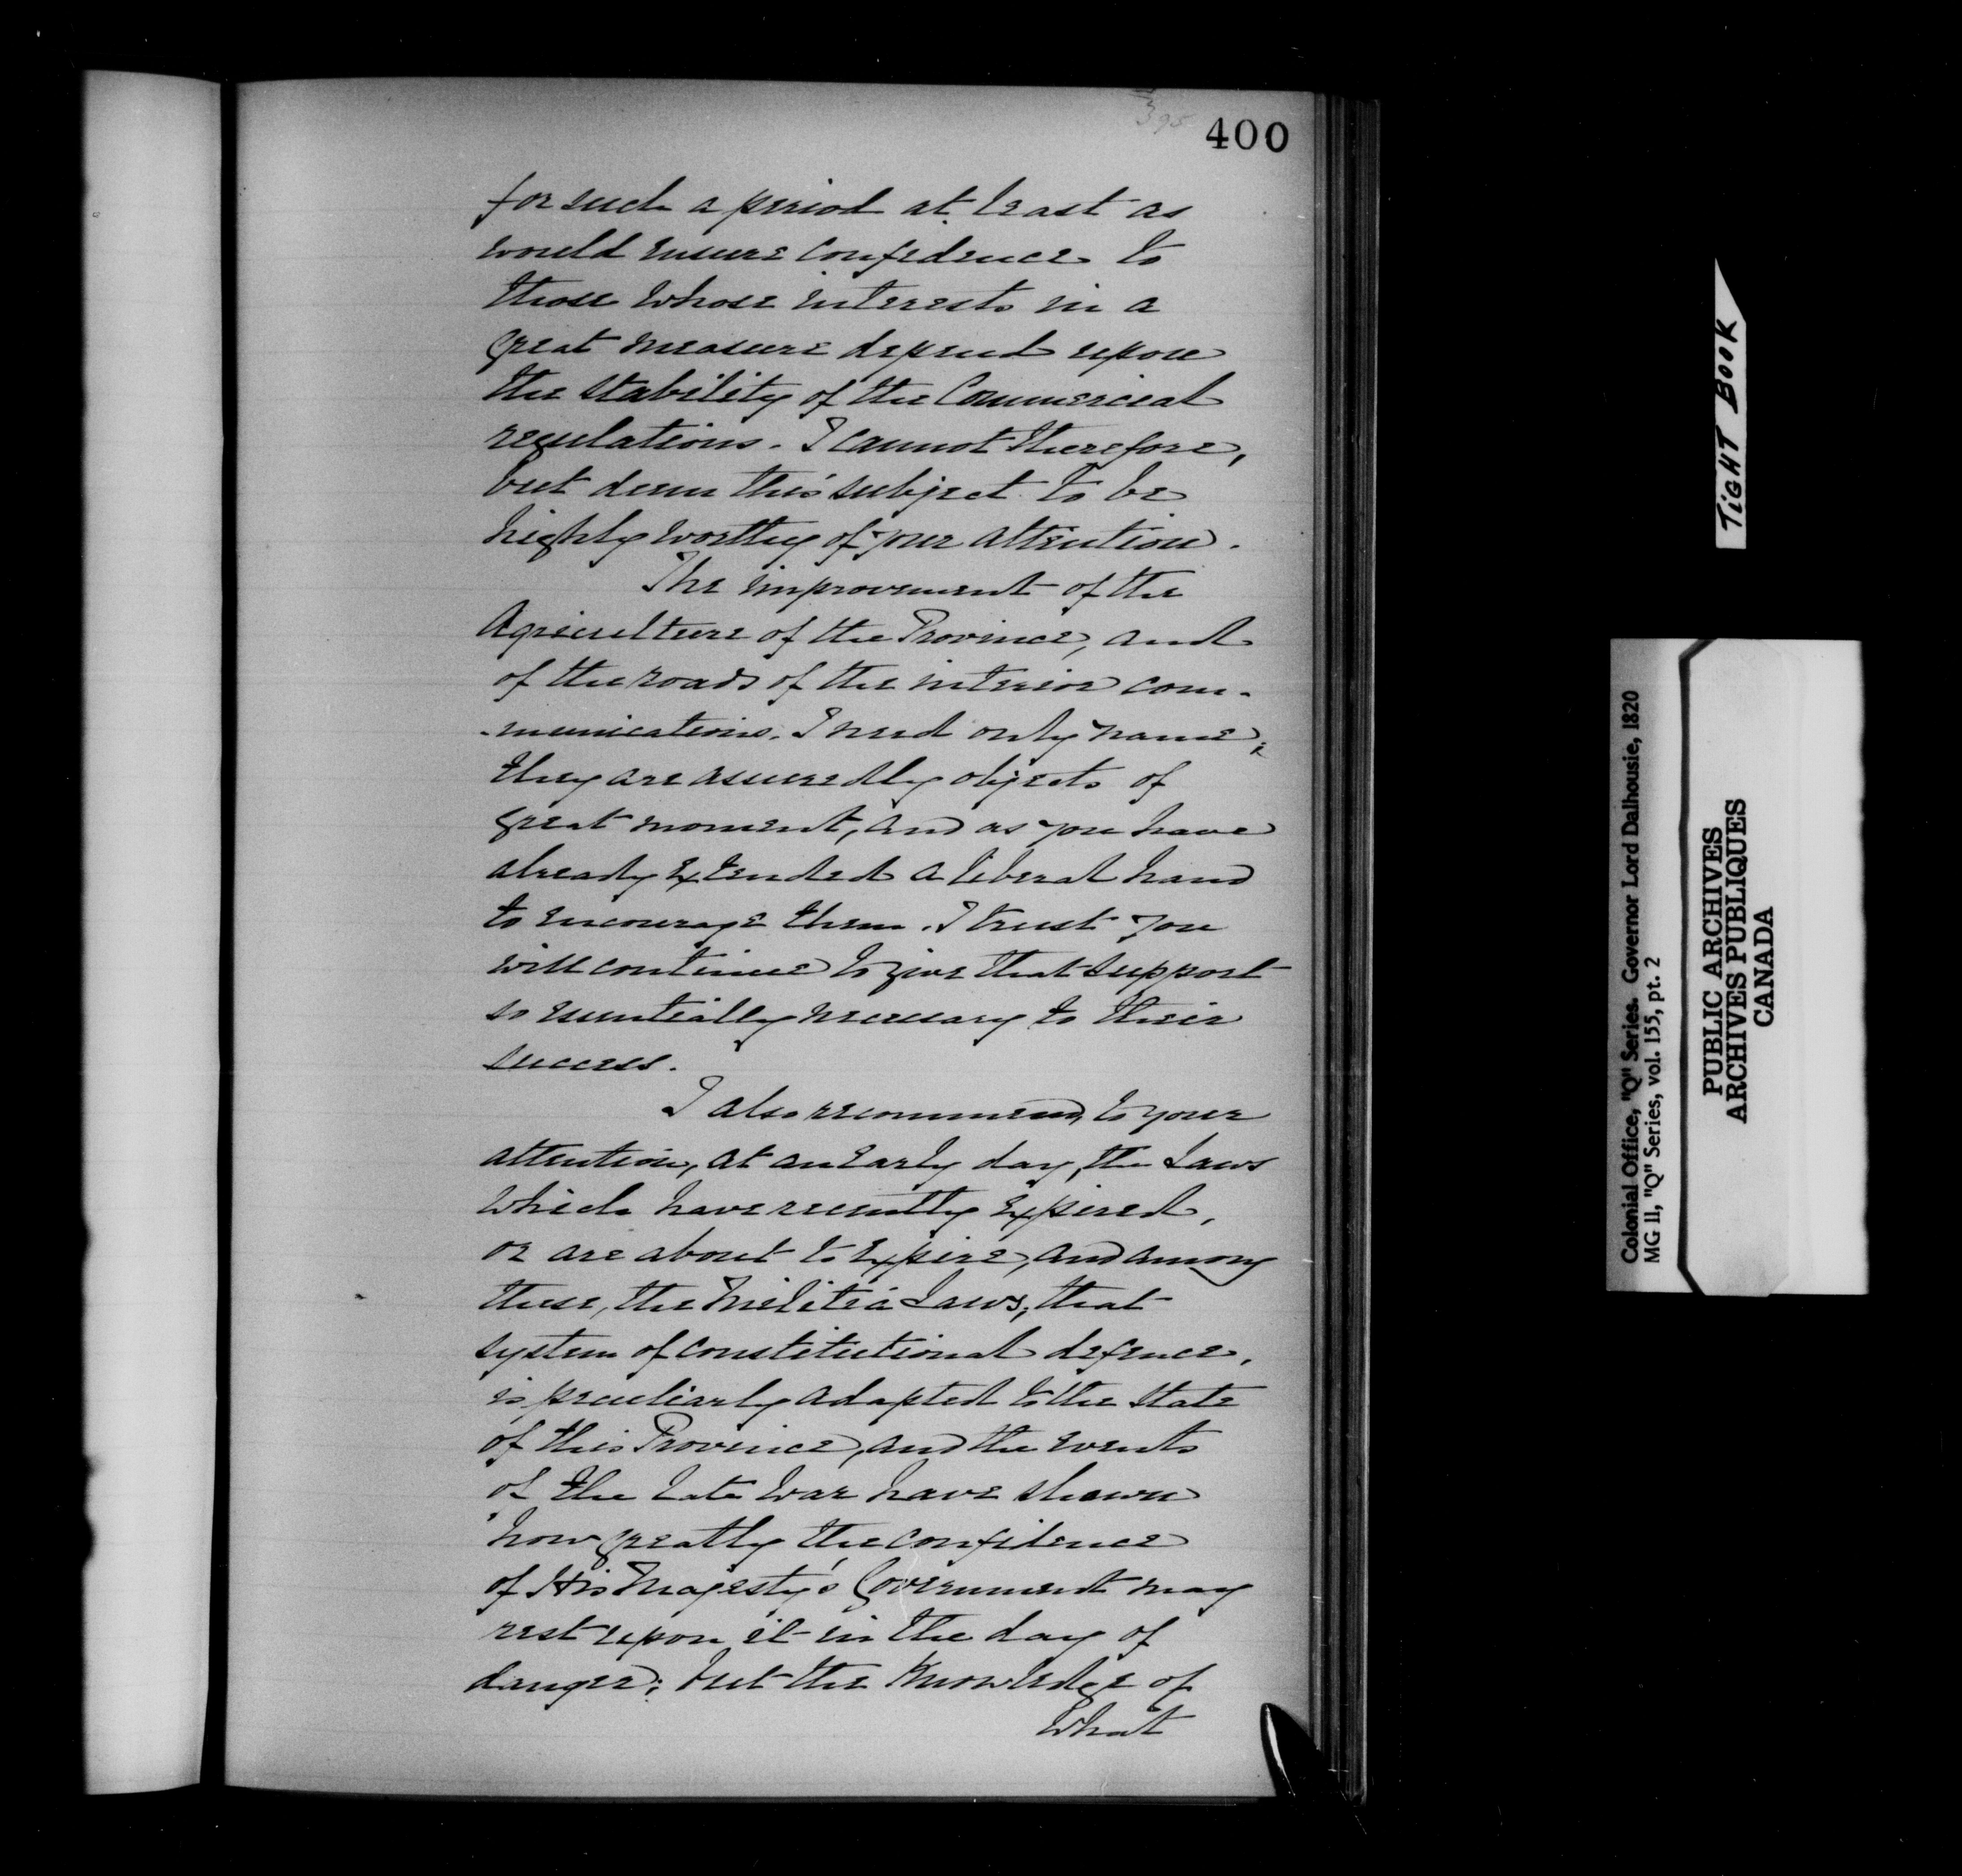 395
400
for such a period at least as
would ensure confidence to
those whose interests in a
great measure depend upon
the stability of the Commercial
regulations. I cannot therefore,
but deem this subject to be
highly worthy of your attention.
The improvement of the
Agriculture of the Province, and
of the roads of the interior com-
-munications. I need only name;
they are assuredly objects of
great moment, and as you have
already extended a liberal hand
to encourage them. I trust you
will continue to give that support
so essentially necessary to their
success.
I also recommend, to your
attention, at an early day, the Laws
which have recently expired,
or are about to expire, and among
these, the Militia Laws; that
system of constitutional defence,
is peculiarly adapted to the State
of this Province, and the events
of the late War have shewn
how greatly the confidence
of His Majesty's Government may
rest upon it in the day of
danger; but the knowledge of
what
TIGHT BOOK
Colonial Office, "Q" Series. Governor Lord Dalhousie, 1820
MG 11, "Q" Series, vol. 155, pt. 2
PUBLIC ARCHIVES
ARCHIVES PUBLIQUES
CANADA